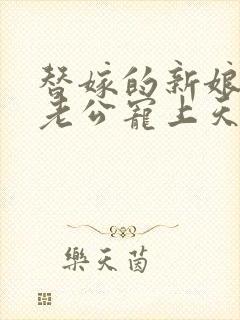 替嫁的新娘
老公寵上天
樂天茵